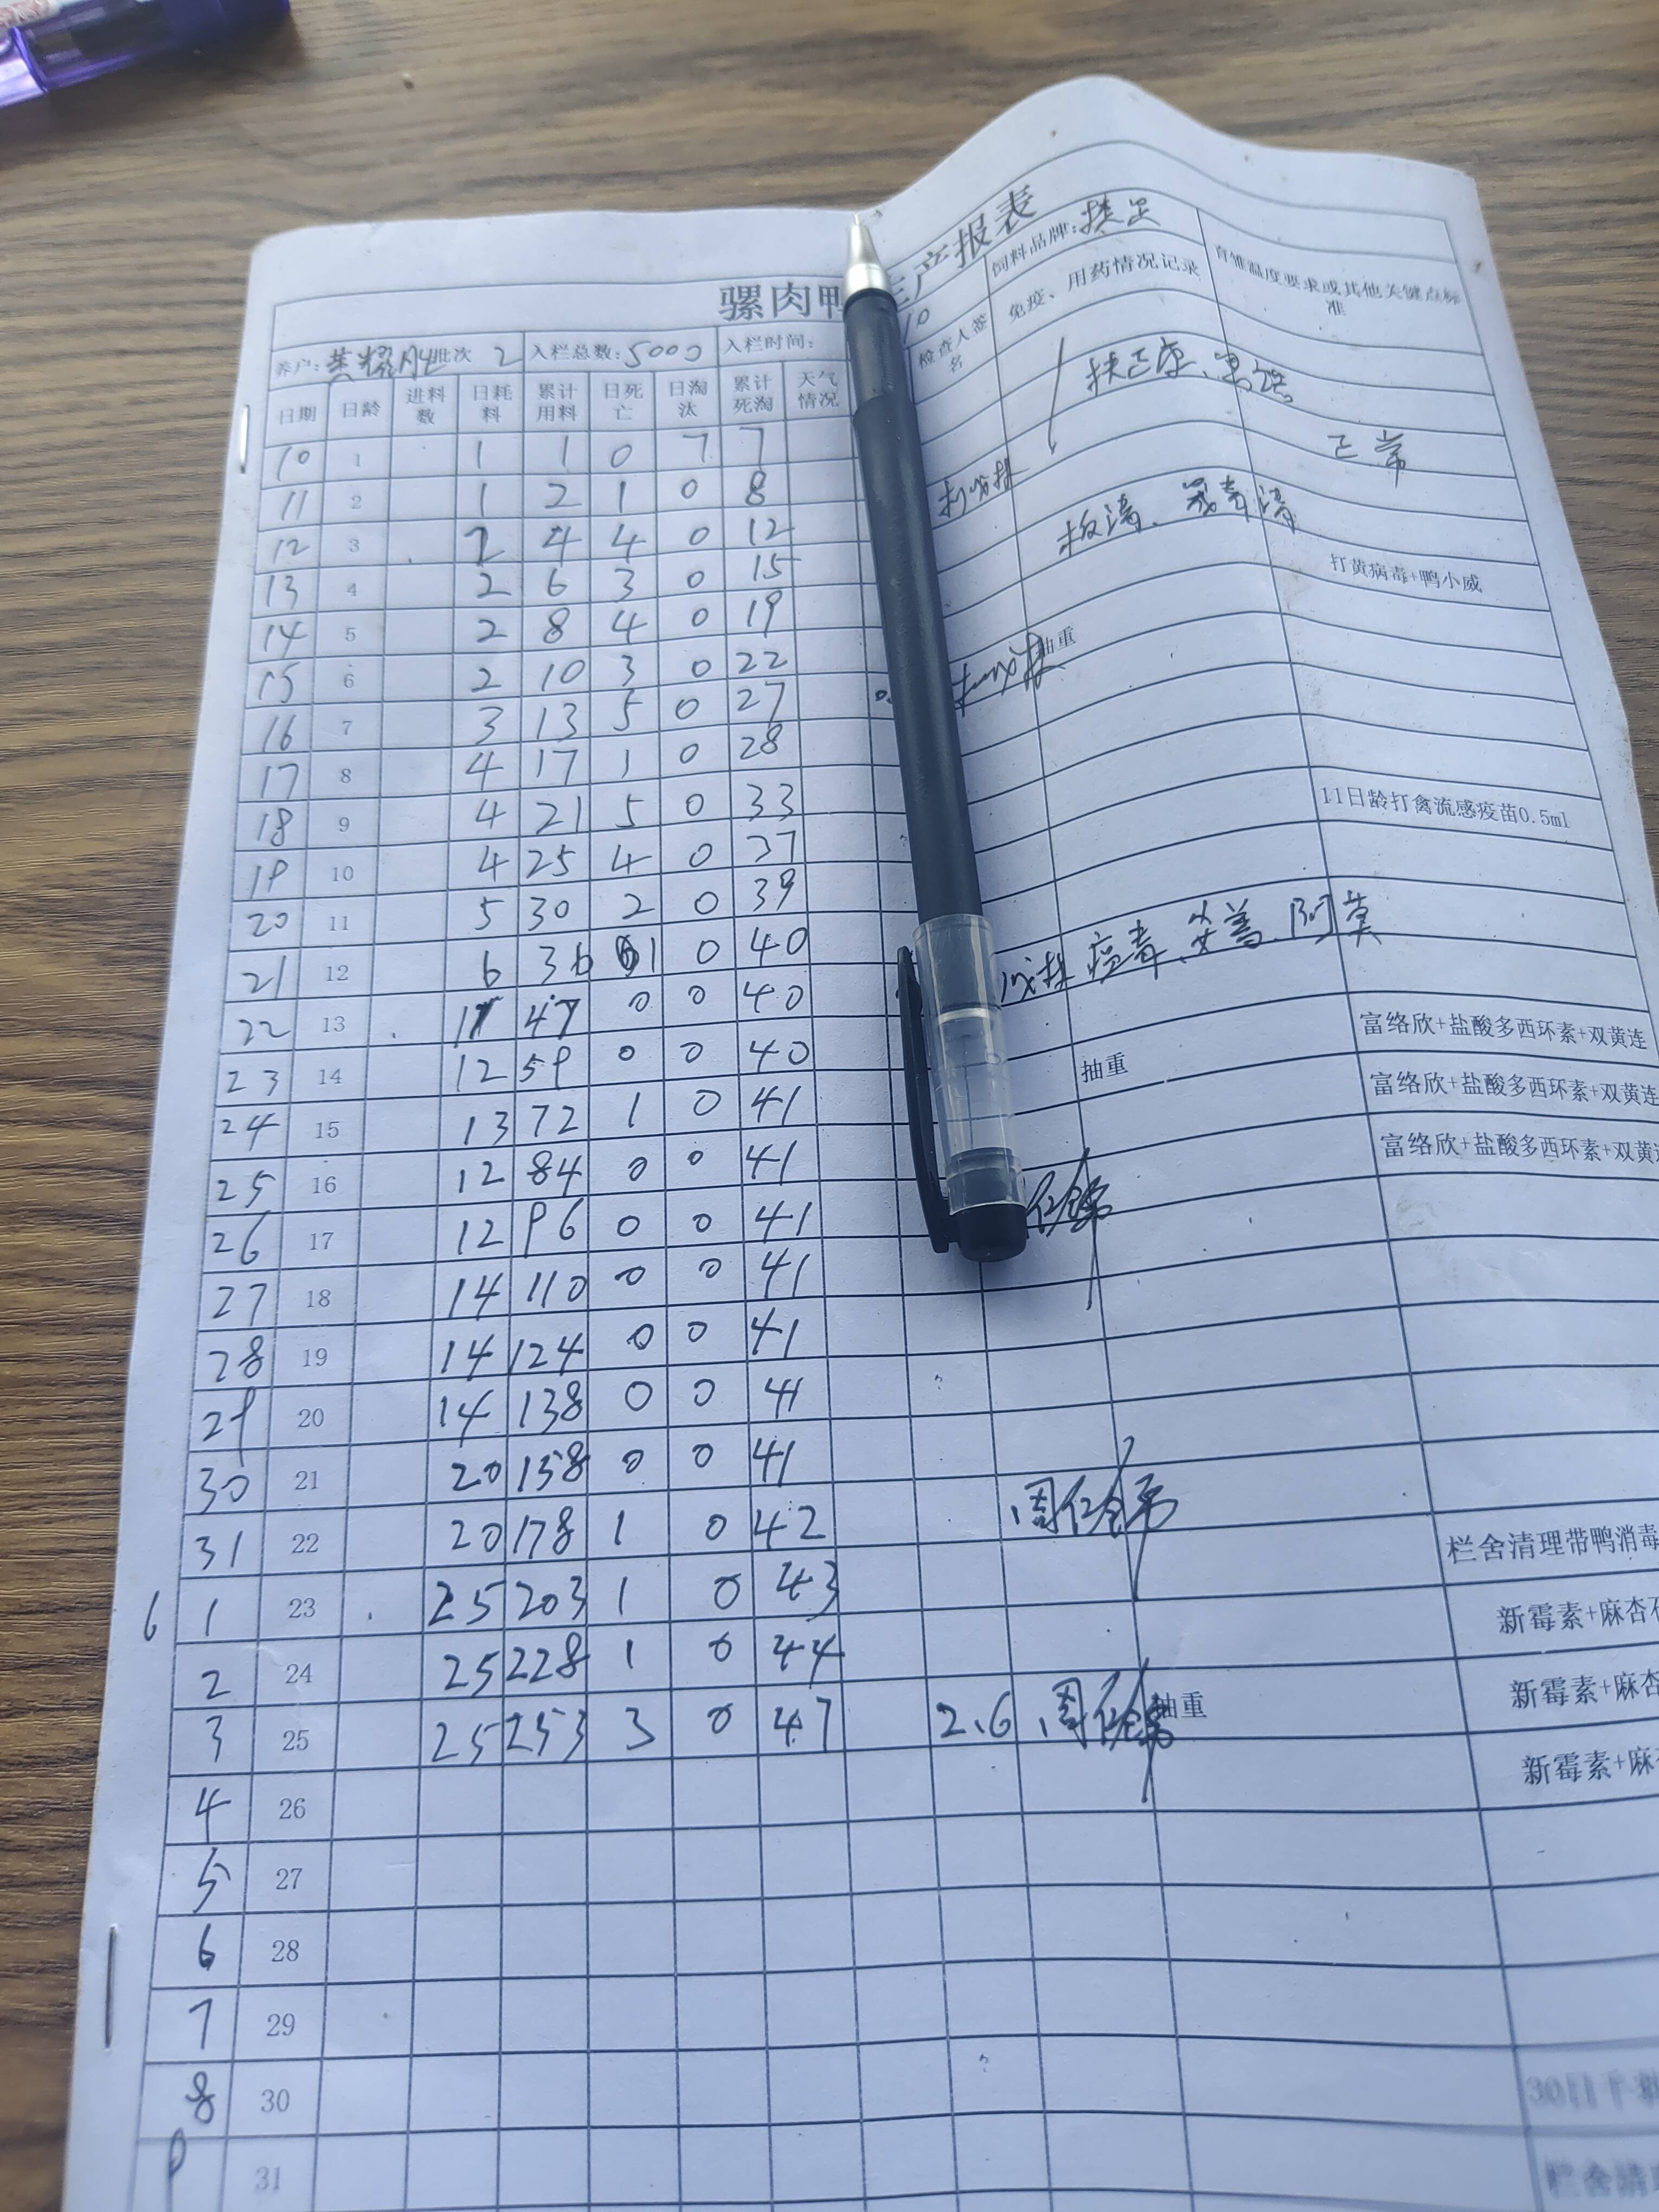 骡肉鸭 生产报表
养户: 批次 2 入栏总数:5000 入栏时间: 10 饲料品牌:
日期 日龄 进料数 日耗料 累计用料 日死亡 日淘汰 累计死淘 天气情况 检查人签名 免疫、用药情况记录 育雏温度要求或其他关键点标准
10 1 1 1 0 7 7
11 2 1 2 1 0 8 正常
12 3 2 4 4 0 12
13 4 2 6 3 0 15
14 5 2 8 4 0 19 打黄病毒+鸭小威
15 6 2 10 3 0 22
16 7 3 13 5 0 27 抽重
17 8 4 17 1 0 28
18 9 4 21 5 0 33
19 10 4 25 4 0 37
20 11 5 30 2 0 39 11日龄打禽流感疫苗0.5ml
21 12 6 36 1 0 40
22 13 11 47 0 0 40
23 14 12 59 0 0 40 抽重 富络欣+盐酸多西环素+双黄连
24 15 13 72 1 0 41 富络欣+盐酸多西环素+双黄连
25 16 12 84 0 0 41 富络欣+盐酸多西环素+双黄连
26 17 12 96 0 0 41
27 18 14 110 0 0 41
28 19 14 124 0 0 41
29 20 14 138 0 0 41
30 21 20 158 0 0 41
31 22 20 178 1 0 42 栏舍清理带鸭消毒
6 1 23 25 203 1 0 43 新霉素+麻杏石
2 24 25 228 1 0 44 新霉素+麻杏
3 25 25 253 3 0 47 2.6 抽重 新霉素+麻
4 26
5 27
6 28
7 29
8 30
9 31